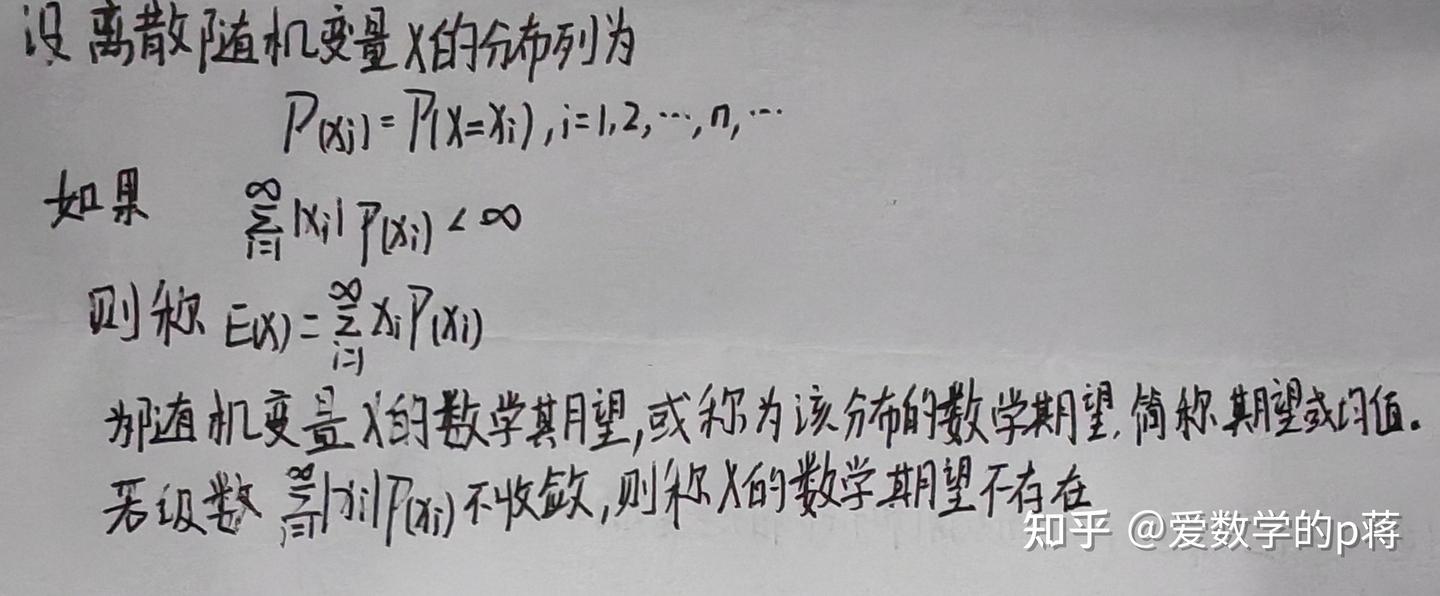 设离散随机变量X的分布列为
P(xi)=P(X=xi),i=1,2,…,n,…
如果 ∞∑i=1 |xi| P(xi) < ∞
则称 E(X)=∞∑i=1 xi P(xi)
为随机变量X的数学期望,或称为该分布的数学期望,简称期望或均值。
若级数 ∞∑i=1 |xi| P(xi) 不收敛,则称X的数学期望不存在
知乎 @爱数学的p蒋